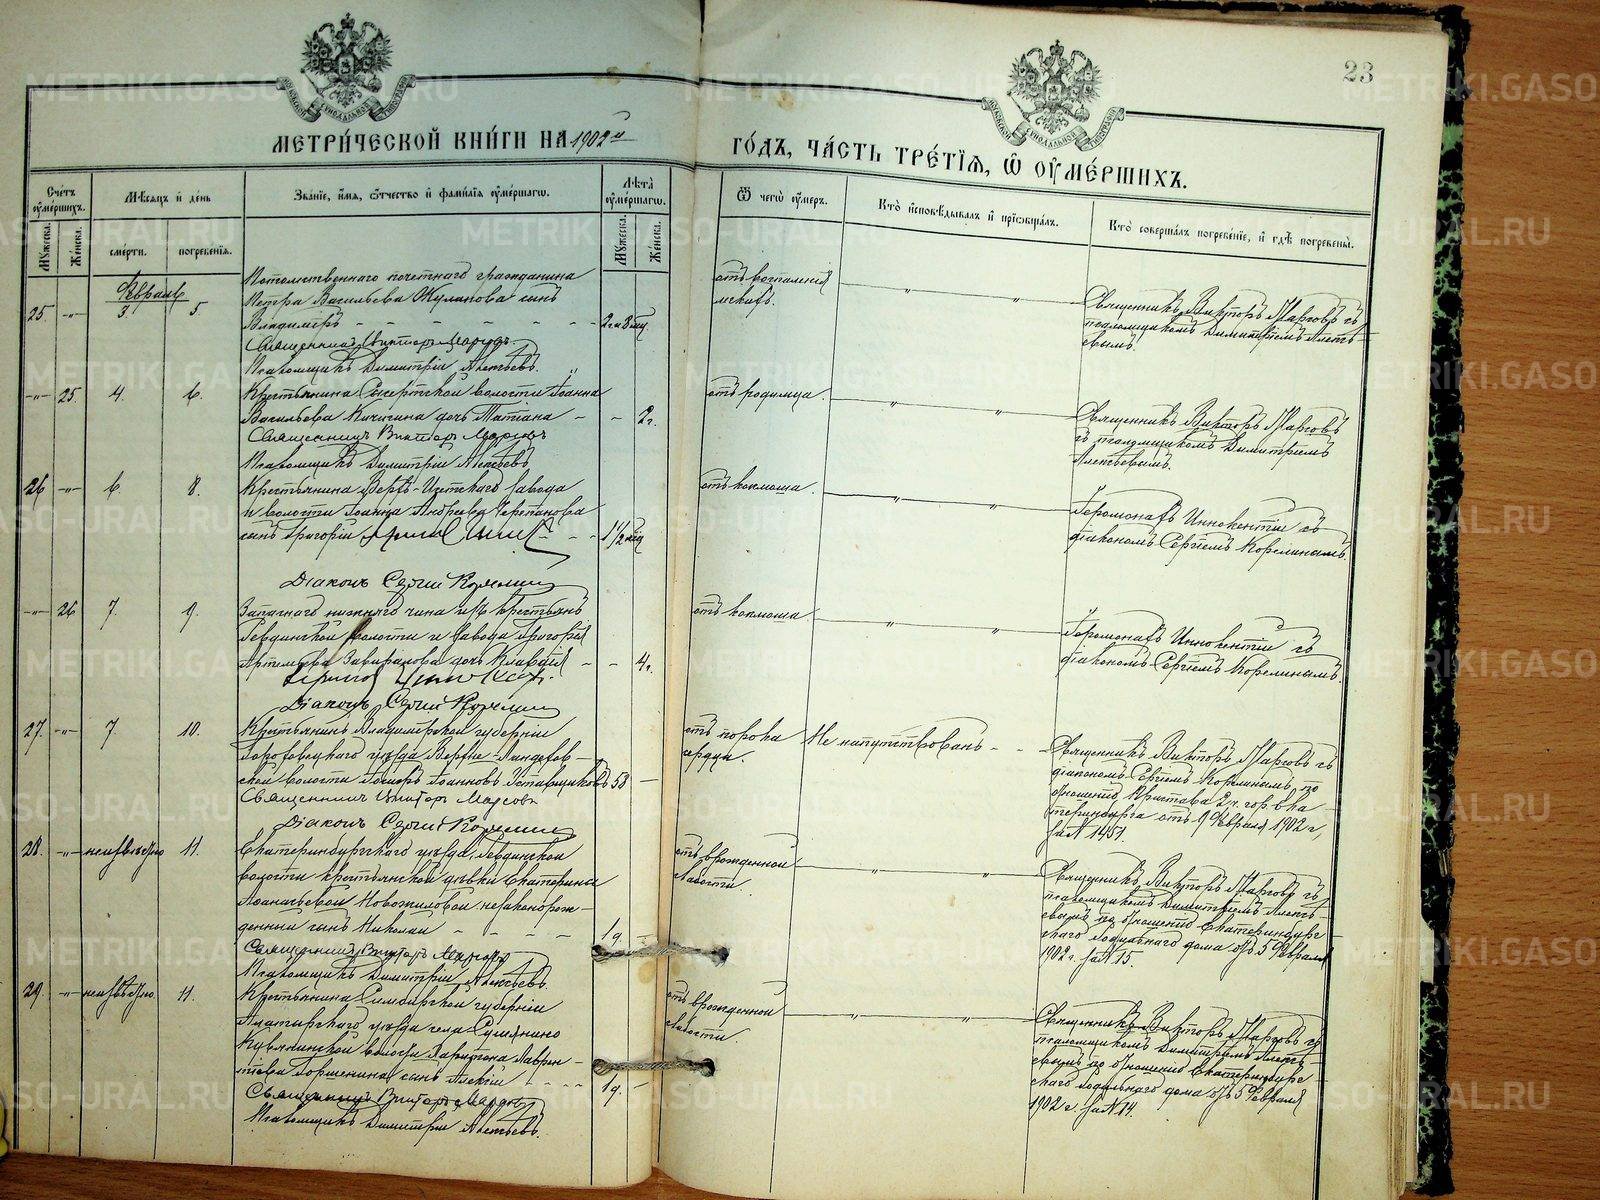 23
МЕТРИ́ЧЕСКОЙ КНИ́ГИ НА 1902 й
ГО́ДЪ, ЧА́СТЬ ТРЕ́ТІѦ, Ѡ҆ ОУМЕ́РШИХЪ.
Сче́тъ оуме́ршихъ.
Мꙋжеска.
Же́нска.
Мѣ́сѧцъ и҆ де́нь
сме́рти.
погребе́нїѧ.
Зва́нїе, и҆́мѧ, ѻ҆́тчество и҆ фами́лїѧ оуме́ршагѡ.
Лѣ́та оуме́ршагѡ.
Мꙋжеска.
Же́нска.
Ѿ чегѡ̀ оу́меръ.
Кто̀ и҆сповѣ́дывалъ и҆ прїѡбща́лъ.
Кто̀ соверша́лъ погребе́нїе, и҆ гдѣ̀ погребены̀.
Февраль
25. -"- 3. 5.
Потомственнаго почетнаго гражданина
Петра Васильева сынъ
Владиміръ - - - - - - 2 г. и 8 мц.
Священникъ Викторъ
Псаломщикъ Димитрій
отъ воспаленія
" "
Священникъ Викторъ съ
псаломщикомъ Димитріемъ
-"- 25 4. 6.
Крестьянина Сысертской волости Іоанна
Васильева Кичигина дочь Татіана - - 2 г.
Священникъ Викторъ
Псаломщикъ Димитрій
отъ родимца.
" "
Священникъ Викторъ
съ псаломщикомъ Димитріемъ
26 -"- 6. 8.
Крестьянина Верхъ-Исетскаго завода
и волости Іоанна Андреева Черепанова
сынъ Григорій - - 1½
Діаконъ Сергій Корелинъ
отъ коклюша.
" "
Іеромонахъ Иннокентій съ
діакономъ Сергіемъ Корелинымъ
-"- 26 7. 9.
Запаснаго нижняго чина изъ крестьянъ
Ревдинской волости и завода Григорія
Артемьева дочь Клавдія - - 4 г.
Діаконъ Сергій Корелинъ
отъ коклюша
" "
Іеромонахъ Иннокентій съ
діакономъ Сергіемъ Корелинымъ.
27. -"- 7. 10.
Крестьянинъ Владимірской губерніи
Гороховецкаго уѣзда Верхне-Ландехов-
ской волости Іоанновъ 58 -
Священникъ Викторъ
Діаконъ Сергій Корелинъ
отъ порока
сердца.
Не напутствованъ - -
Священникъ Викторъ съ
діакономъ Сергіемъ Корелинымъ по
отношенію Пристава 2 ч. гор. Ека-
теринбурга отъ 9 Февраля 1902 г.,
за № 1451.
28. -"- неизвѣстно 11.
Екатеринбургскаго уѣзда, Ревдинской
волости крестьянской дѣвки Екатерины
Новожиловой, незаконорож-
денный сынъ Николай - - - - 1 д. -
Священникъ Викторъ
Псаломщикъ Димитрій
отъ врожденной
слабости.
" "
Священникъ Викторъ съ
псаломщикомъ Димитріемъ
по отношенію Екатеринбург-
скаго родильнаго дома отъ 5 Февраля
1902 г. за № 15.
29. -"- неизвѣстно. 11.
Крестьянина Симбирской губерніи
Алатырскаго уѣзда села
волости Харитона Лаврен-
тіева Горшенина сынъ Алексій - - - 1 д. -
Священникъ Викторъ
Псаломщикъ Димитрій
отъ врожденной
слабости.
" "
Священникъ Викторъ съ
псаломщикомъ Димитріемъ
по отношенію Екатеринбург-
скаго родильнаго дома отъ 5 Февраля
1902 г. за № 14.
METRIKI.GASO-URAL.RU